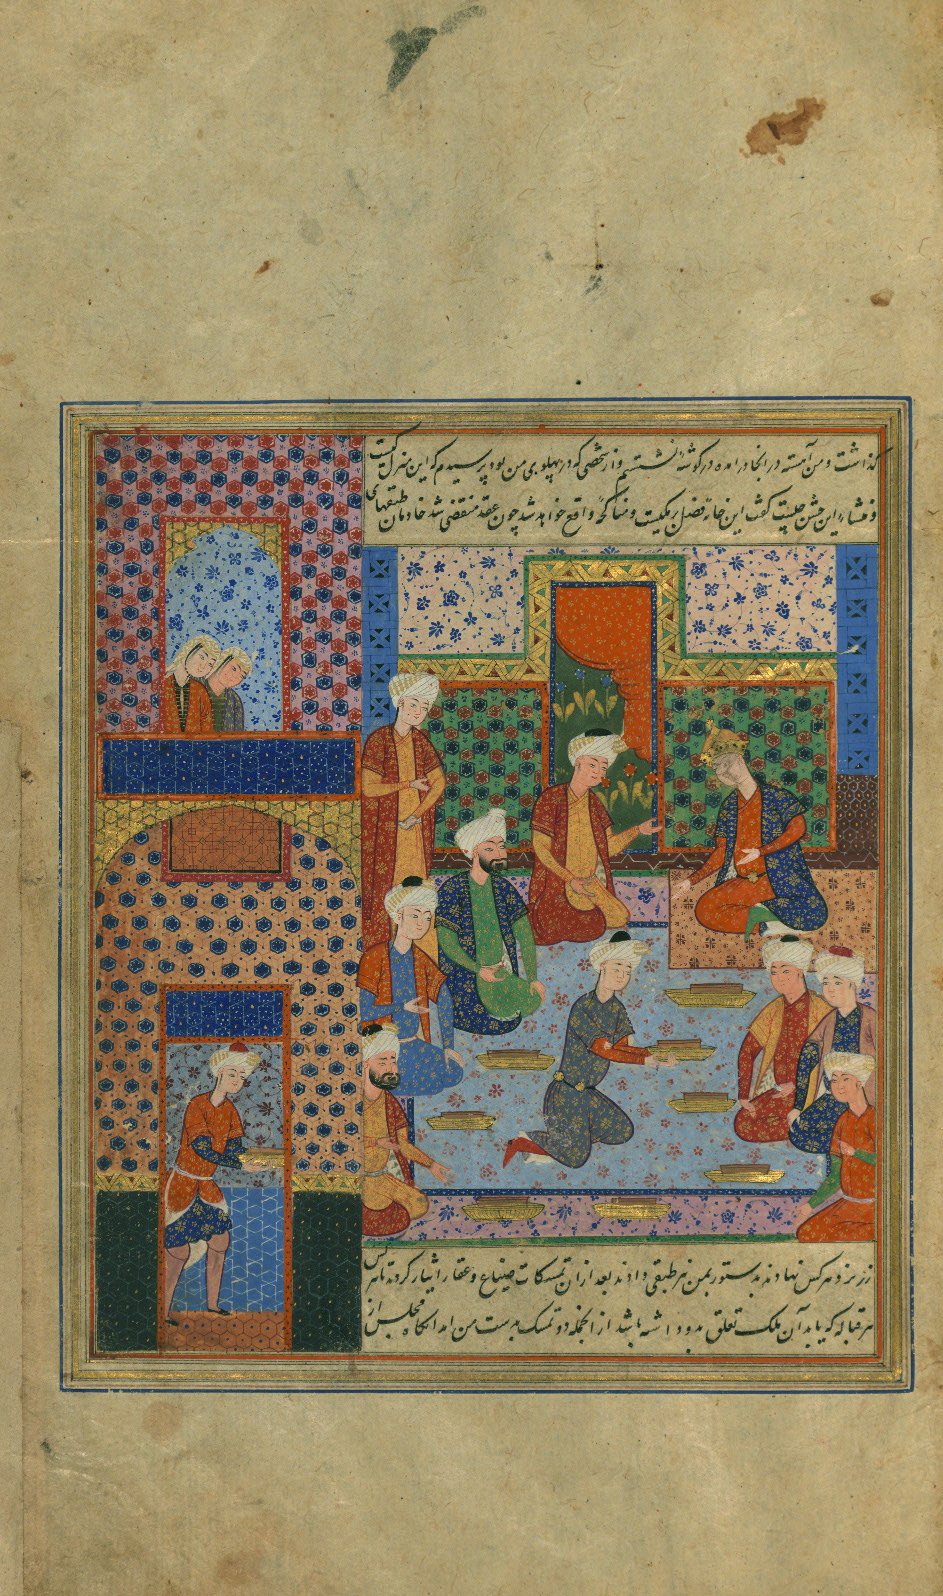 گذاشت و من آهسته در انجا درامده در گوشه نشستم و از شخصی که در پهلوی من بود پرسیدم که این منزل کیست
و منشاء این جشن چیست گفت این خانه فضل برمکیست و مناکحه واقع خواهد شد چون عقد منقضی شد خادمان طبقهای
زر نزد هر کس نهادند بدستور بمن نیز طبقی دادند بعد ازان تمسکات ضیاع و عقار ایثار کردند تا هر کس
هر قباله که یابد آن ملک تعلق بدو داشته باشد از انجمله دو تمسک بدست من امد انگاه مجلس از